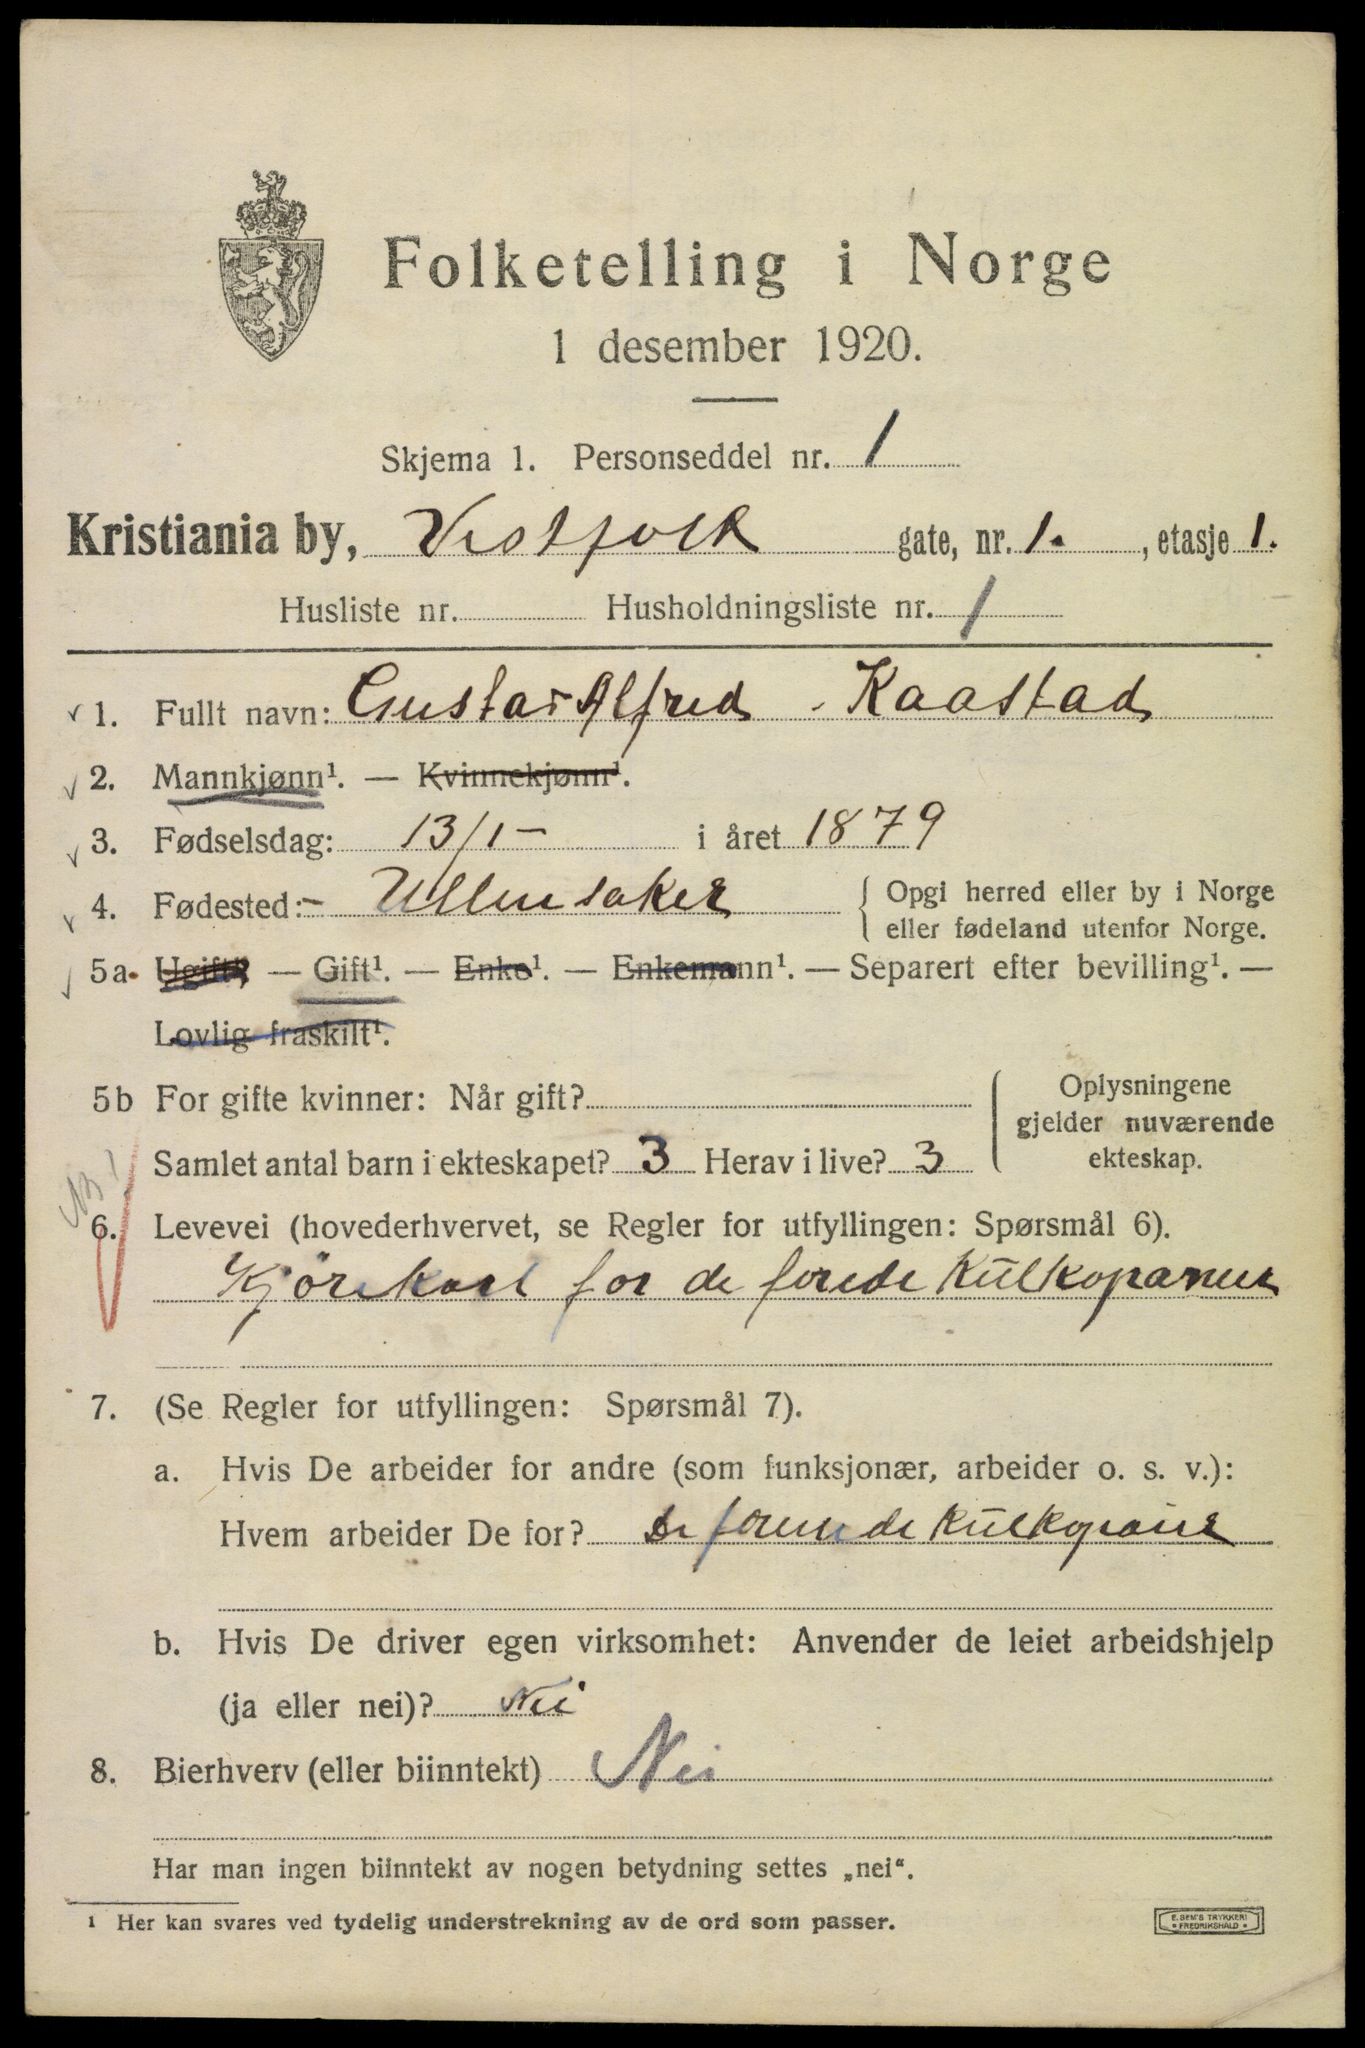 Folketelling i Norge
1 desember 1920.
Skjema 1. Personseddel nr. 1
Kristiania by, Vestfold gate, nr. 1. , etasje 1.
Husliste nr. Husholdningsliste nr. 1
1. Fullt navn: Gustav Alfred Kaastad
2. Mannkjønn¹. — Kvinnekjønn¹.
3. Fødselsdag: 13/1- i året 1879
4. Fødested: - Ullensaker { Opgi herred eller by i Norge
eller fødeland utenfor Norge.
5a Ugift¹ — Gift¹. — Enke¹. — Enkemann¹. — Separert efter bevilling¹. —
Lovlig fraskilt¹.
5b For gifte kvinner: Når gift?
Samlet antal barn i ekteskapet? 3 Herav i live? 3
Oplysningene
gjelder nuværende
ekteskap.
6. Levevei (hovederhvervet, se Regler for utfyllingen: Spørsmål 6).
Kjørekarl for de forede Kulkopanier
7. (Se Regler for utfyllingen: Spørsmål 7).
a. Hvis De arbeider for andre (som funksjonær, arbeider o. s. v.):
Hvem arbeider De for? De forenede Kulkopanier
b. Hvis De driver egen virksomhet: Anvender de leiet arbeidshjelp
(ja eller nei)? Nei
8. Bierhverv (eller biinntekt) Nei
Har man ingen biinntekt av nogen betydning settes „nei“.
1 Her kan svares ved tydelig understrekning av de ord som passer.
E. SEM'S TRYKKERI
FREDRIKSHALD